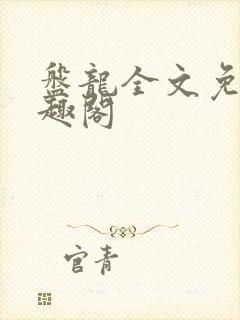 盤龍全文免
趣閣
官青